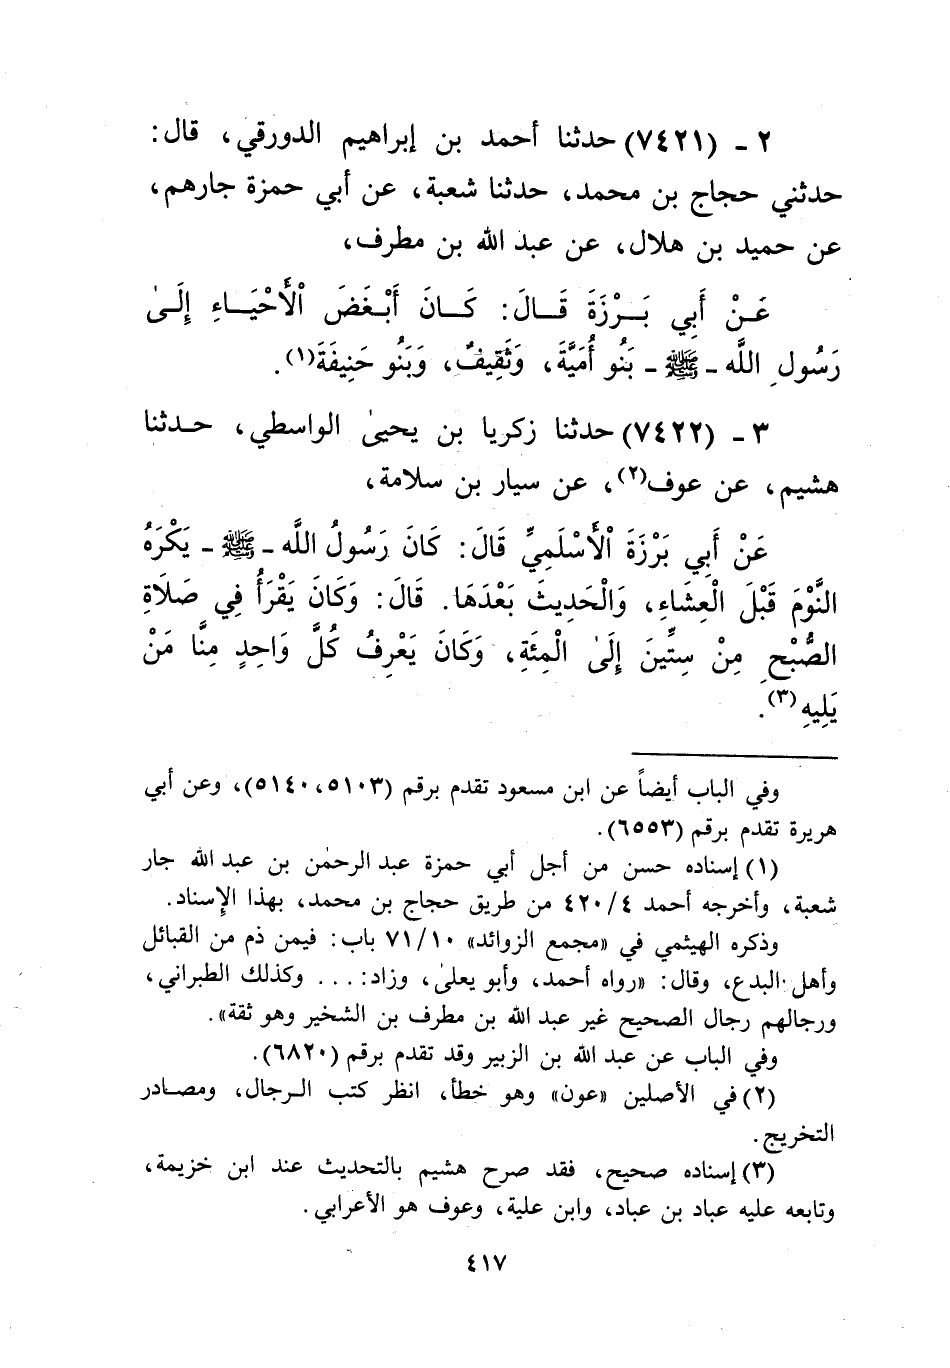 ٢ - (٧٤٢١) حدثنا أحمد بن إبراهيم الدورقي، قال:
حدثني حجاج بن محمد، حدثنا شعبة، عن أبي حمزة جارهم،
عن حميد بن هلال، عن عبد الله بن مطرف،
عَنْ أَبِي بَرْزَةَ قَالَ: كَانَ أَبْغَضَ الْأَحْيَاءِ إِلَىٰ
رَسُولِ اللَّه - ﷺ - بَنُو أُمَيَّةَ، وَثَقِيفٌ، وَبَنُو حَنِيفَةَ(١).
٣ - (٧٤٢٢) حدثنا زكريا بن يحيىٰ الواسطي، حدثنا
هشيم، عن عوف(٢)، عن سيار بن سلامة،
عَنْ أَبِي بَرْزَةَ الْأَسْلَمِيِّ قَالَ: كَانَ رَسُولُ اللَّه - ﷺ - يَكْرَهُ
النَّوْمَ قَبْلَ الْعِشَاءِ، وَالْحَدِيثَ بَعْدَهَا. قَالَ: وَكَانَ يَقْرَأُ فِي صَلَاةِ
الصُّبْحِ مِنْ سِتِّينَ إِلَىٰ الْمِئَةِ، وَكَانَ يَعْرِفُ كُلَّ وَاحِدٍ مِنَّا مَنْ
يَلِيهِ(٣).
وفي الباب أيضاً عن ابن مسعود تقدم برقم (٥١٠٣، ٥١٤٠)، وعن أبي
هريرة تقدم برقم (٦٥٥٣).
(١) إسناده حسن من أجل أبي حمزة عبد الرحمٰن بن عبد الله جار
شعبة، وأخرجه أحمد ٤/ ٤٢٠ من طريق حجاج بن محمد، بهذا الإسناد.
وذكره الهيثمي في «مجمع الزوائد» ١٠/ ٧١ باب: فيمن ذم من القبائل
وأهل البدع، وقال: «رواه أحمد، وأبو يعلىٰ، وزاد: ... وكذلك الطبراني،
ورجالهم رجال الصحيح غير عبد الله بن مطرف بن الشخير وهو ثقة».
وفي الباب عن عبد الله بن الزبير وقد تقدم برقم (٦٨٢٠).
(٢) في الأصلين «عون» وهو خطأ، انظر كتب الرجال، ومصادر
التخريج.
(٣) إسناده صحيح، فقد صرح هشيم بالتحديث عند ابن خزيمة،
وتابعه عليه عباد بن عباد، وابن علية، وعوف هو الأعرابي.
٤١٧